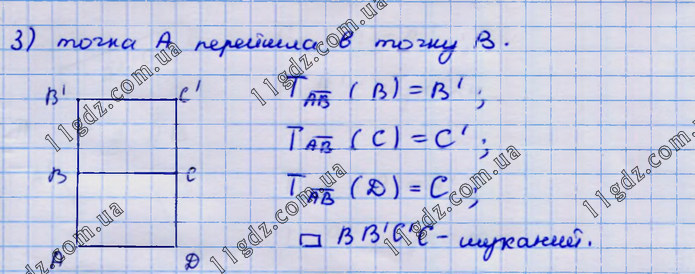 3) точка А перейшла в точку В.
B' C'
T_{\overline{AB}} (B) = B' ;
T_{\overline{AB}} (C) = C' ;
B C
T_{\overline{AB}} (D) = C ;
□ BB'C'C - шуканий.
A D
11gdz.com.ua
11gdz.com.ua
11gdz.com.ua
11gdz.com.ua
11gdz.com.ua
11gdz.com.ua
11gdz.com.ua